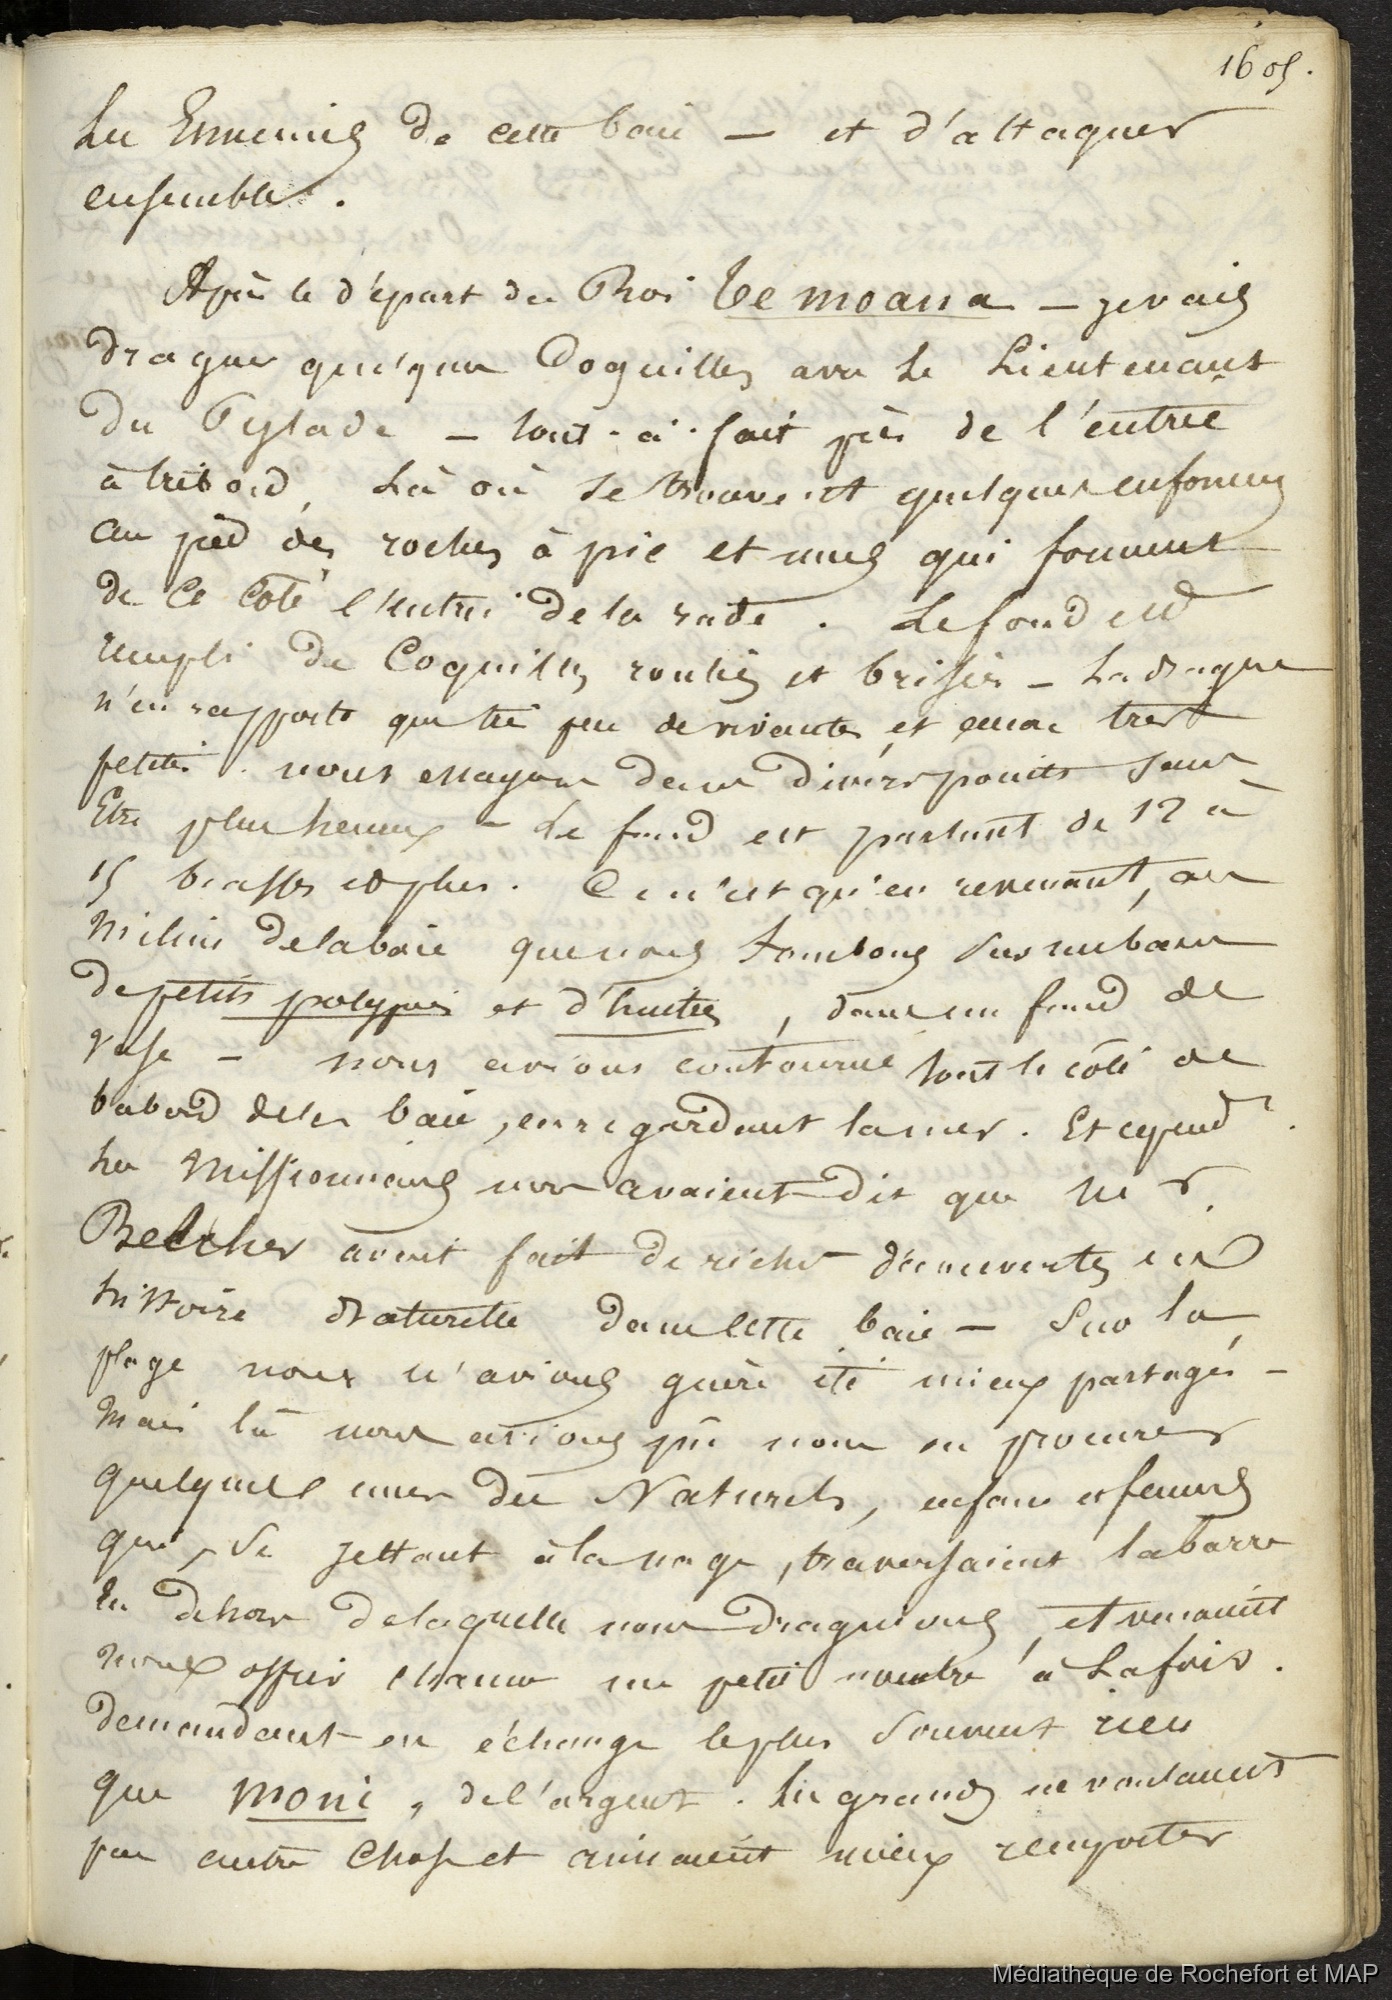 1605.
Les Ennemis de cette baie — et d'attaquer
ensemble.
Après le départ du Roi Te moana — je vais
draguer quelques Coquilles avec le Lieutenant
du Pylade — tout-à-fait près de l'entrée
à tribord, Là où se trouvent quelques enfoncems
au pied des roches à pic et nues qui forment
de ce côté l'entrée de la rade. Le fond est
rempli de Coquilles roulées et brisées — La drague
n'en rapporte que très peu de vivantes, et encore très
petites. nous essayons dans divers points sans
Etre plus heureux — Le fond est partout de 12 à
15 brasses et plus. Ce n'est qu'en revenant, au
milieu de la baie que nous tombons sur un banc
de petits polypiers et d'huitres, dans un fond de
vase — nous avions contourné tout le côté de
babord de la baie, en regardant la mer. Et cepend.t
les Missionnaires nous avaient dit que M.r
Belcher avait fait de riches découvertes en
histoire Naturelle dans cette baie — Sur la
plage nous n'avions guère été mieux partagés —
Mais là nous avions pû nous en procurer
quelques unes des Naturels, enfans et femmes
qui, se jettant à la nage, traversaient la barre
en dehors de laquelle nous draguions, et venaient
nous offrir chacun un petit nombre à La fois.
demandant en échange le plus souvent rien
que moni, de l'argent. Les grands ne voulaient
pas autre Chose et aimaient mieux remporter
Médiathèque de Rochefort et MAP